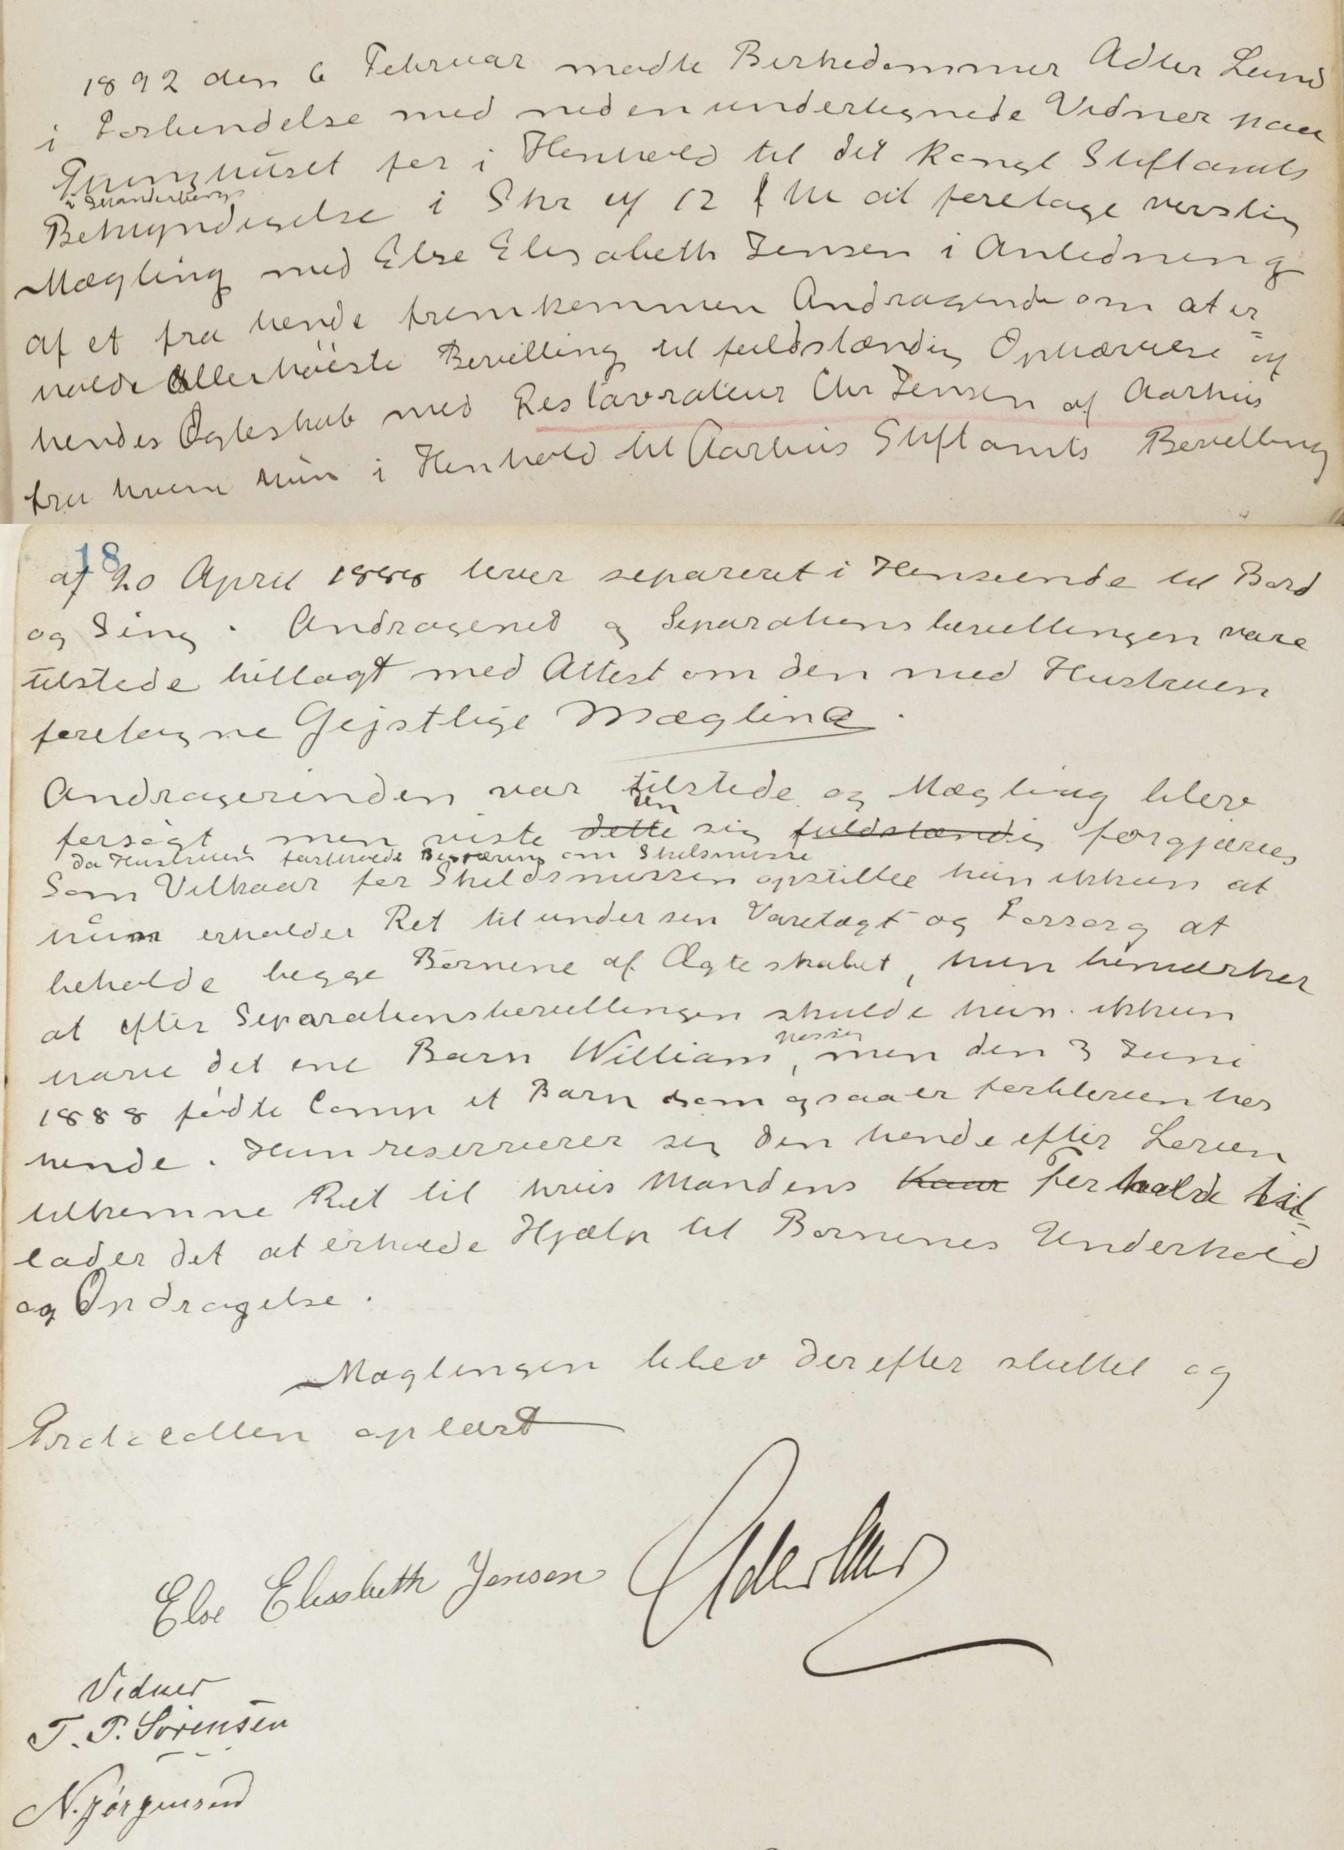 1892 den 6 Februar mødte Birkedommer Adler Lund
i Forbindelse med nedenundertegnede Vidner paa
Thinghuset for i Henhold til det kongl Stiftamts
i Skanderborg
Bemyndigelse i Skr af 12 f M at foretage verslig
Mægling med Else Elisabeth Jensen i Anledning
af et fra hende fremkommen Andragende om at er=
holde allerhöieste Bevilling til fuldstændig Ophævelse af
hendes Ægteskab med Restavrateur Chr Jensen af Aarhus
fra hvem hun i Henhold til Aarhus Stiftamts Bevilling
18
af 20 April 1888 lever separeret i Henseende til Bord
og Seng. Andragened og Separationsbevillingen vare
tilstede billagt med Attest om den med Hustruen
foretagne Gejstlige Mægling.
Andragerinden var tilstede og Mægling blev
den
forsøgt men viste dette sig fuldstændig forgjæves
da Hustruen fastholdt Begæring om Skilsmisse
Som Vilkaar for Skildsmissen opstiller hun ikkun at
hun erholder Ret til under sin Varetægt og Forsorg at
beholde begge Börnene af Ægteskabet, hun bemærker
at efter Separationsbevillingen skulde hun ikkun
have det ene Barn William hos sig, men den 3 Juni
1888 fødte Comp et Barn som ogsaa er forbleven hos
hende. Hun reserverer sig den hende efter Loven
tilkomne Ret til hvis Mandens Kaar Forholde til=
lader det at erholde Hjælp til Børnenes Underhold
og Opdragelse.
Mæglingen blev derefter sluttet og
Protocollen oplæst
Else Elisabeth Jensen Adler Lund
Vidner
T. P. Sørensen
N. Jörgensen